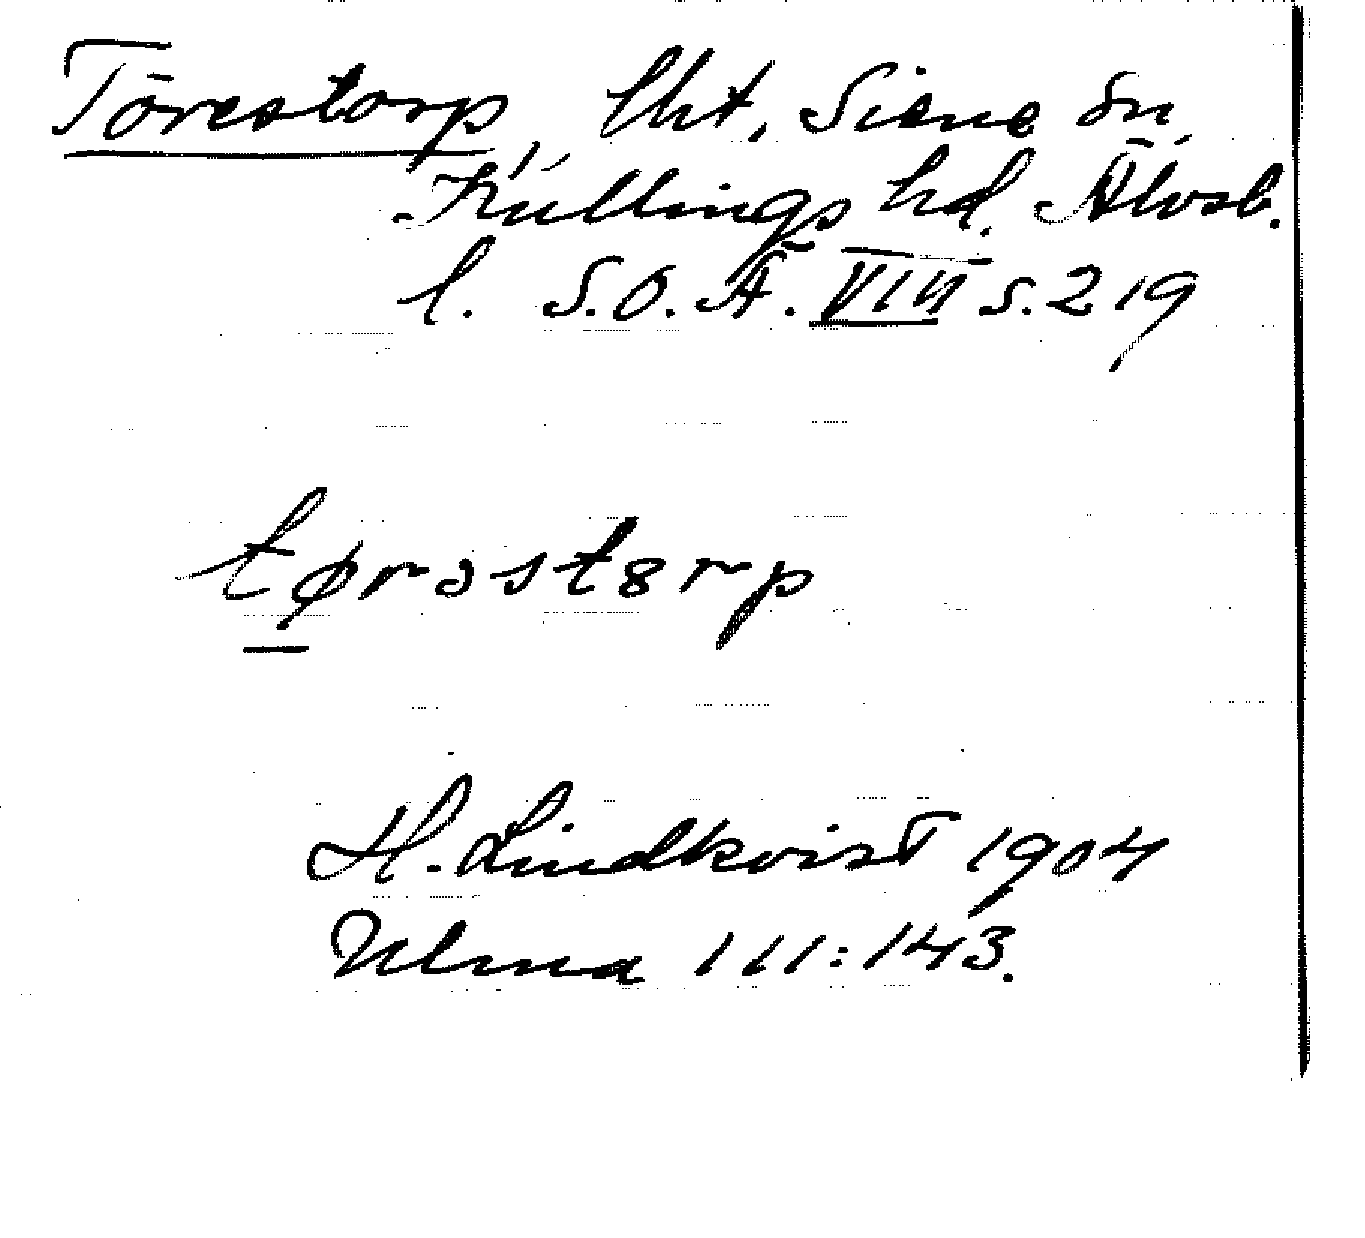 Törestorp, lht, Siene sn,
Kullings hd. Älvsb.
l. S.O.Ä. VIII s. 219
tørəstȣrp
H. Lindkvist 1904
Ulma 111:143.